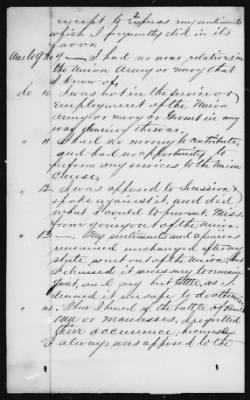 2
except to express my sentiments
which I frequently did in its
favor
Ans to Q No 9 — I had no near relatives in
the Union Army or navy that
I know of.
do 10 I was not in the service or
Employment of the Union
army or navy or Govmt in any
way during the war.
" 11 I had no money to contribute
and had no opportunity to
perform any services to the Union
Cause,
" 12 I was opposed to Secession &
spoke against it, and did
what I could to prevent Miss
from going out of the Union.
" 13 — My sentiments and opinions
remained unchanged after my
state went out of the Union but
I deemed it necessary to remain
quiet, and say but little, as I
deemed it unsafe to do otherwise
" 14. When I heard of the battle of Bull
run or Manassas, I regretted
their occurrence, because
I always was opposed to the